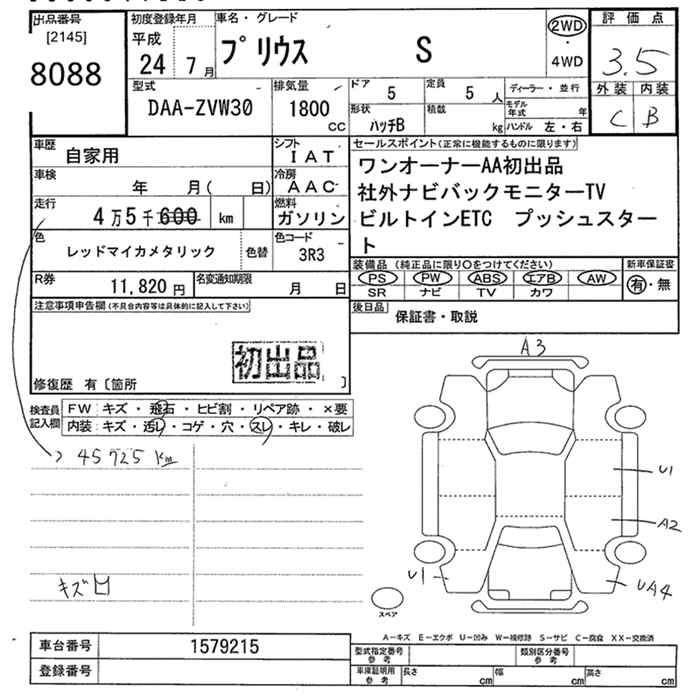 出品番号
[2145]
8088
初度登録年月
平成
24 7月
車名・グレード
プリウス S
2WD
・
4WD
評価点
3.5
外装 内装
C B
型式
DAA-ZVW30
排気量
1800
CC
ドア
5
定員
5人
形状
ハッチB
積載
kg
ディーラー・並行
モデル年式 年
ハンドル 左・右
車歴
自家用
シフト
IAT
車検
年 月( 日)
冷房
AAC
走行
4万5千600 km
燃料
ガソリン
色
レッドマイカメタリック
色替
色コード
3R3
R券
11,820円
名変通知期限
月 日
セールスポイント(正常に機能するものに限ります)
ワンオーナーAA初出品
社外ナビバックモニターTV
ビルトインETC プッシュスター
ト
装備品(純正品に限り〇をつけてください)
PS PW ABS エアB AW
SR ナビ TV カワ
新車保証書
有・無
後日品
保証書・取説
注意事項申告欄(不具合内容等は具体的に記入して下さい)
初出品
修復歴 有〔箇所 〕
検査員
記入欄
FW キズ・飛石・ヒビ割・リペア跡・×要
内装:キズ・汚レ・コゲ・穴・スレ・キレ・破レ
45725 km
キズ凹
A3
U1
A2
U1
UA4
スペア
A-キズ E-エクボ U-凹み W-補修跡 S-サビ C-腐食 XX-交換済
車台番号
1579215
登録番号
型式指定番号
参考
類別区分番号
参考
車庫証明用
参考
長さ cm
幅 cm
高さ cm